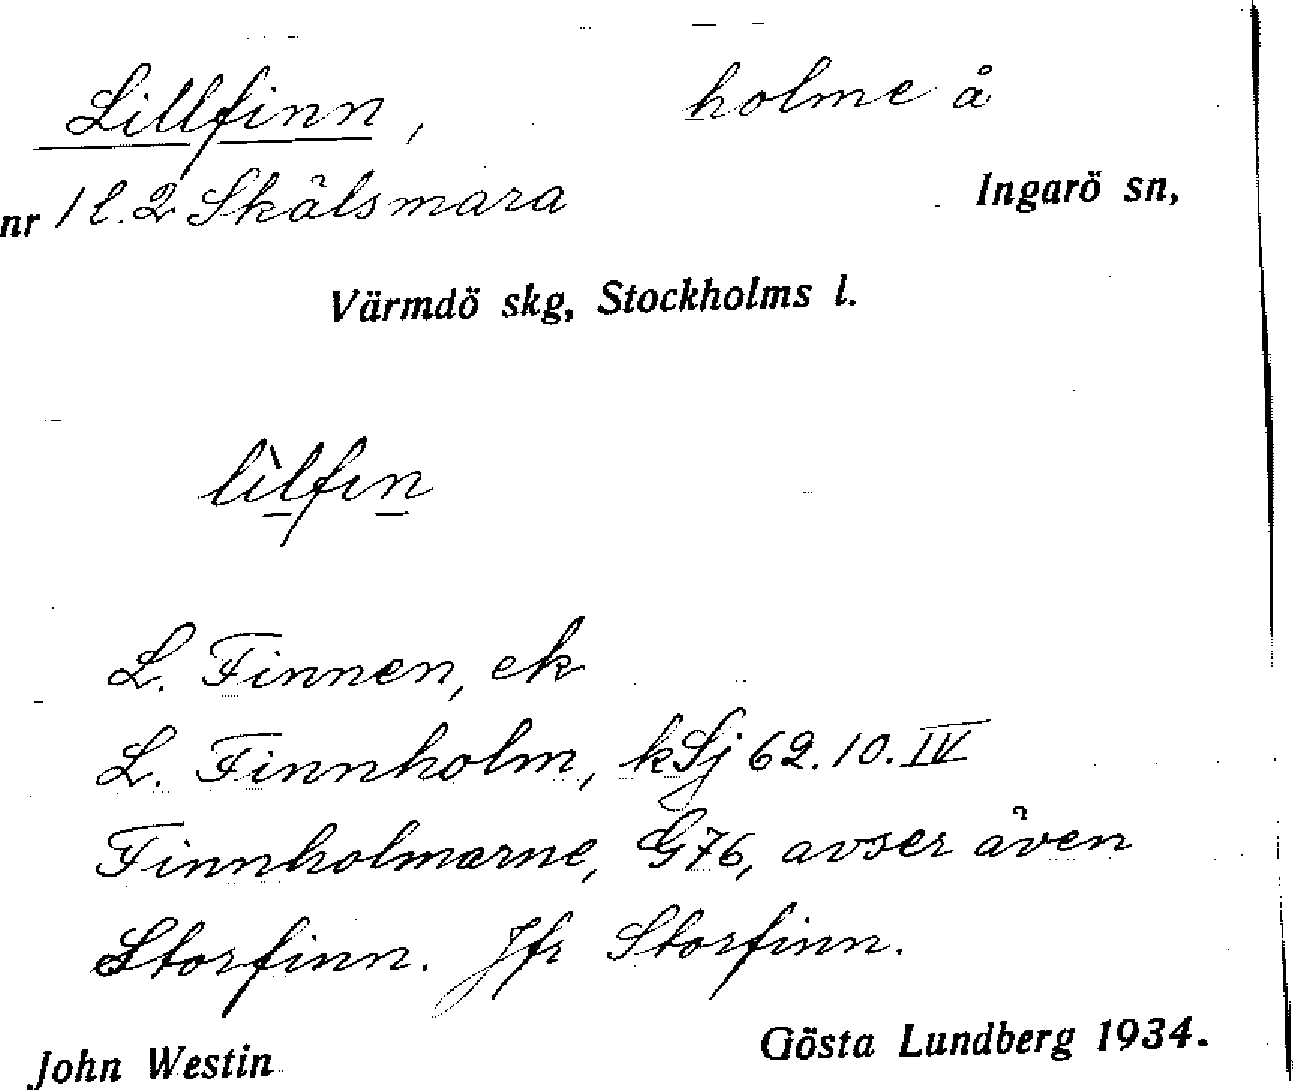 Lillfinn, holme å
nr 1 l. 2 Skälsmara Ingarö sn,
Värmdö skg, Stockholms l.
lìlfın
L. Finnen, ek
L. Finnholm, kSj 62.10.IV
Finnholmarne, G76, avser även
Storfinn. Jfr Storfinn.
John Westin Gösta Lundberg 1934.